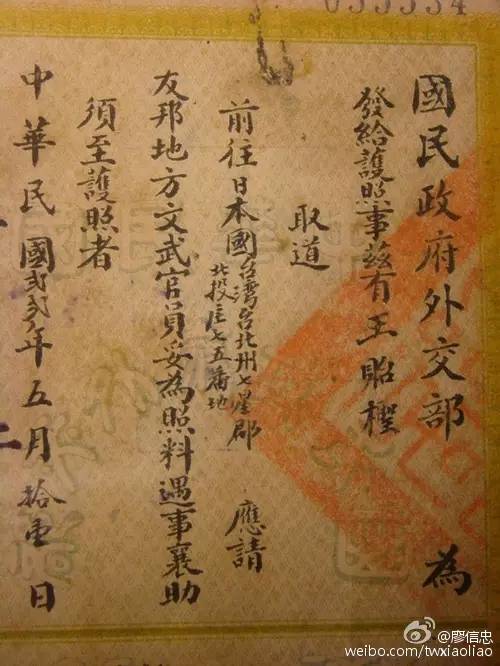 國民政府外交部 為
發給護照事茲有王貽
取道
前往日本國台灣台北州七星郡
北投庄七五番地
應請
友邦地方文武官員妥為照料遇事襄助
須至護照者
中華民國貳貳年五月拾壹日
@廖信忠
weibo.com/twxiaoliao